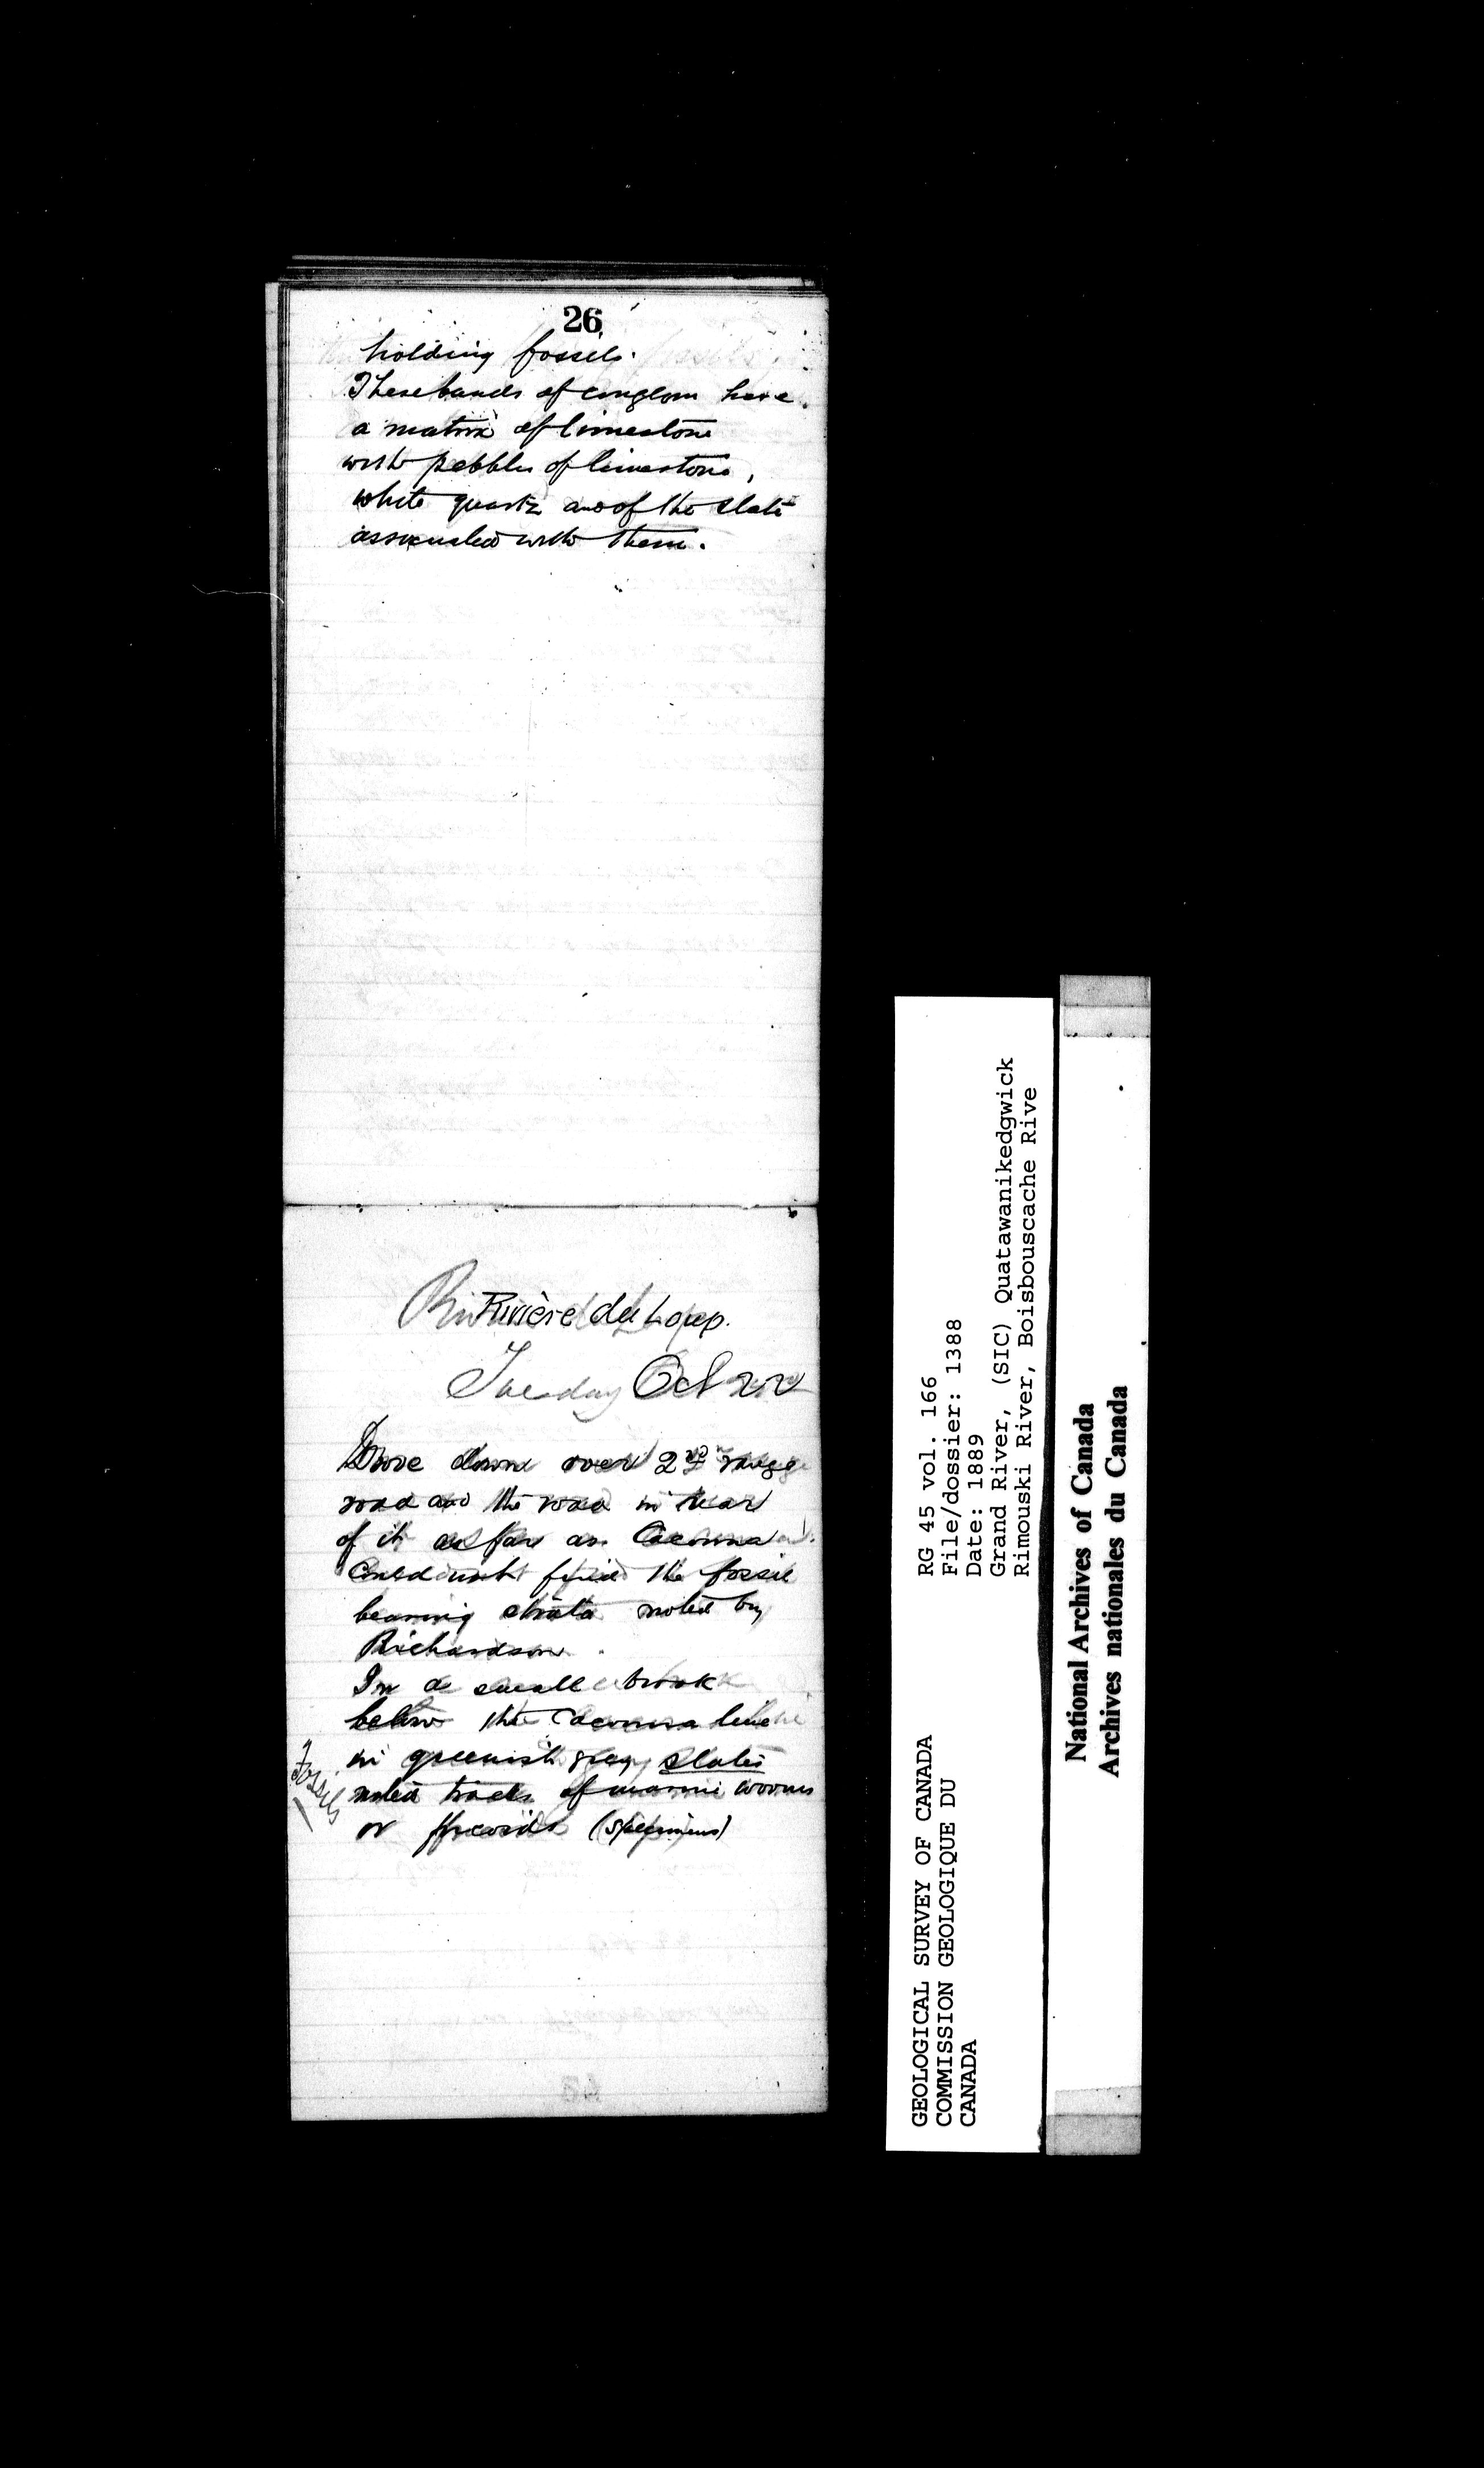 26
holding fossils.
These bands of conglom have
a matrix of limestone
with pebbles of limestone,
white quartz and of the slate
associated with them.
Rivière du Loup.
Tuesday Oct 22
Drove down over 2nd range
road and the road in rear
of it as far as Cacouna
Could not find the fossil
bearing strata noted by
Richardson.
In a small brook
below the Cacouna line
in greenish gray slates
noted tracks of marine worms
or fucoids (specimens)
Fossils
GEOLOGICAL SURVEY OF CANADA
COMMISSION GEOLOGIQUE DU
CANADA
RG 45 vol. 166
File/dossier: 1388
Date: 1889
Grand River, (SIC) Quatawanikedgwick
Rimouski River, Boisbouscache Rive
National Archives of Canada
Archives nationales du Canada